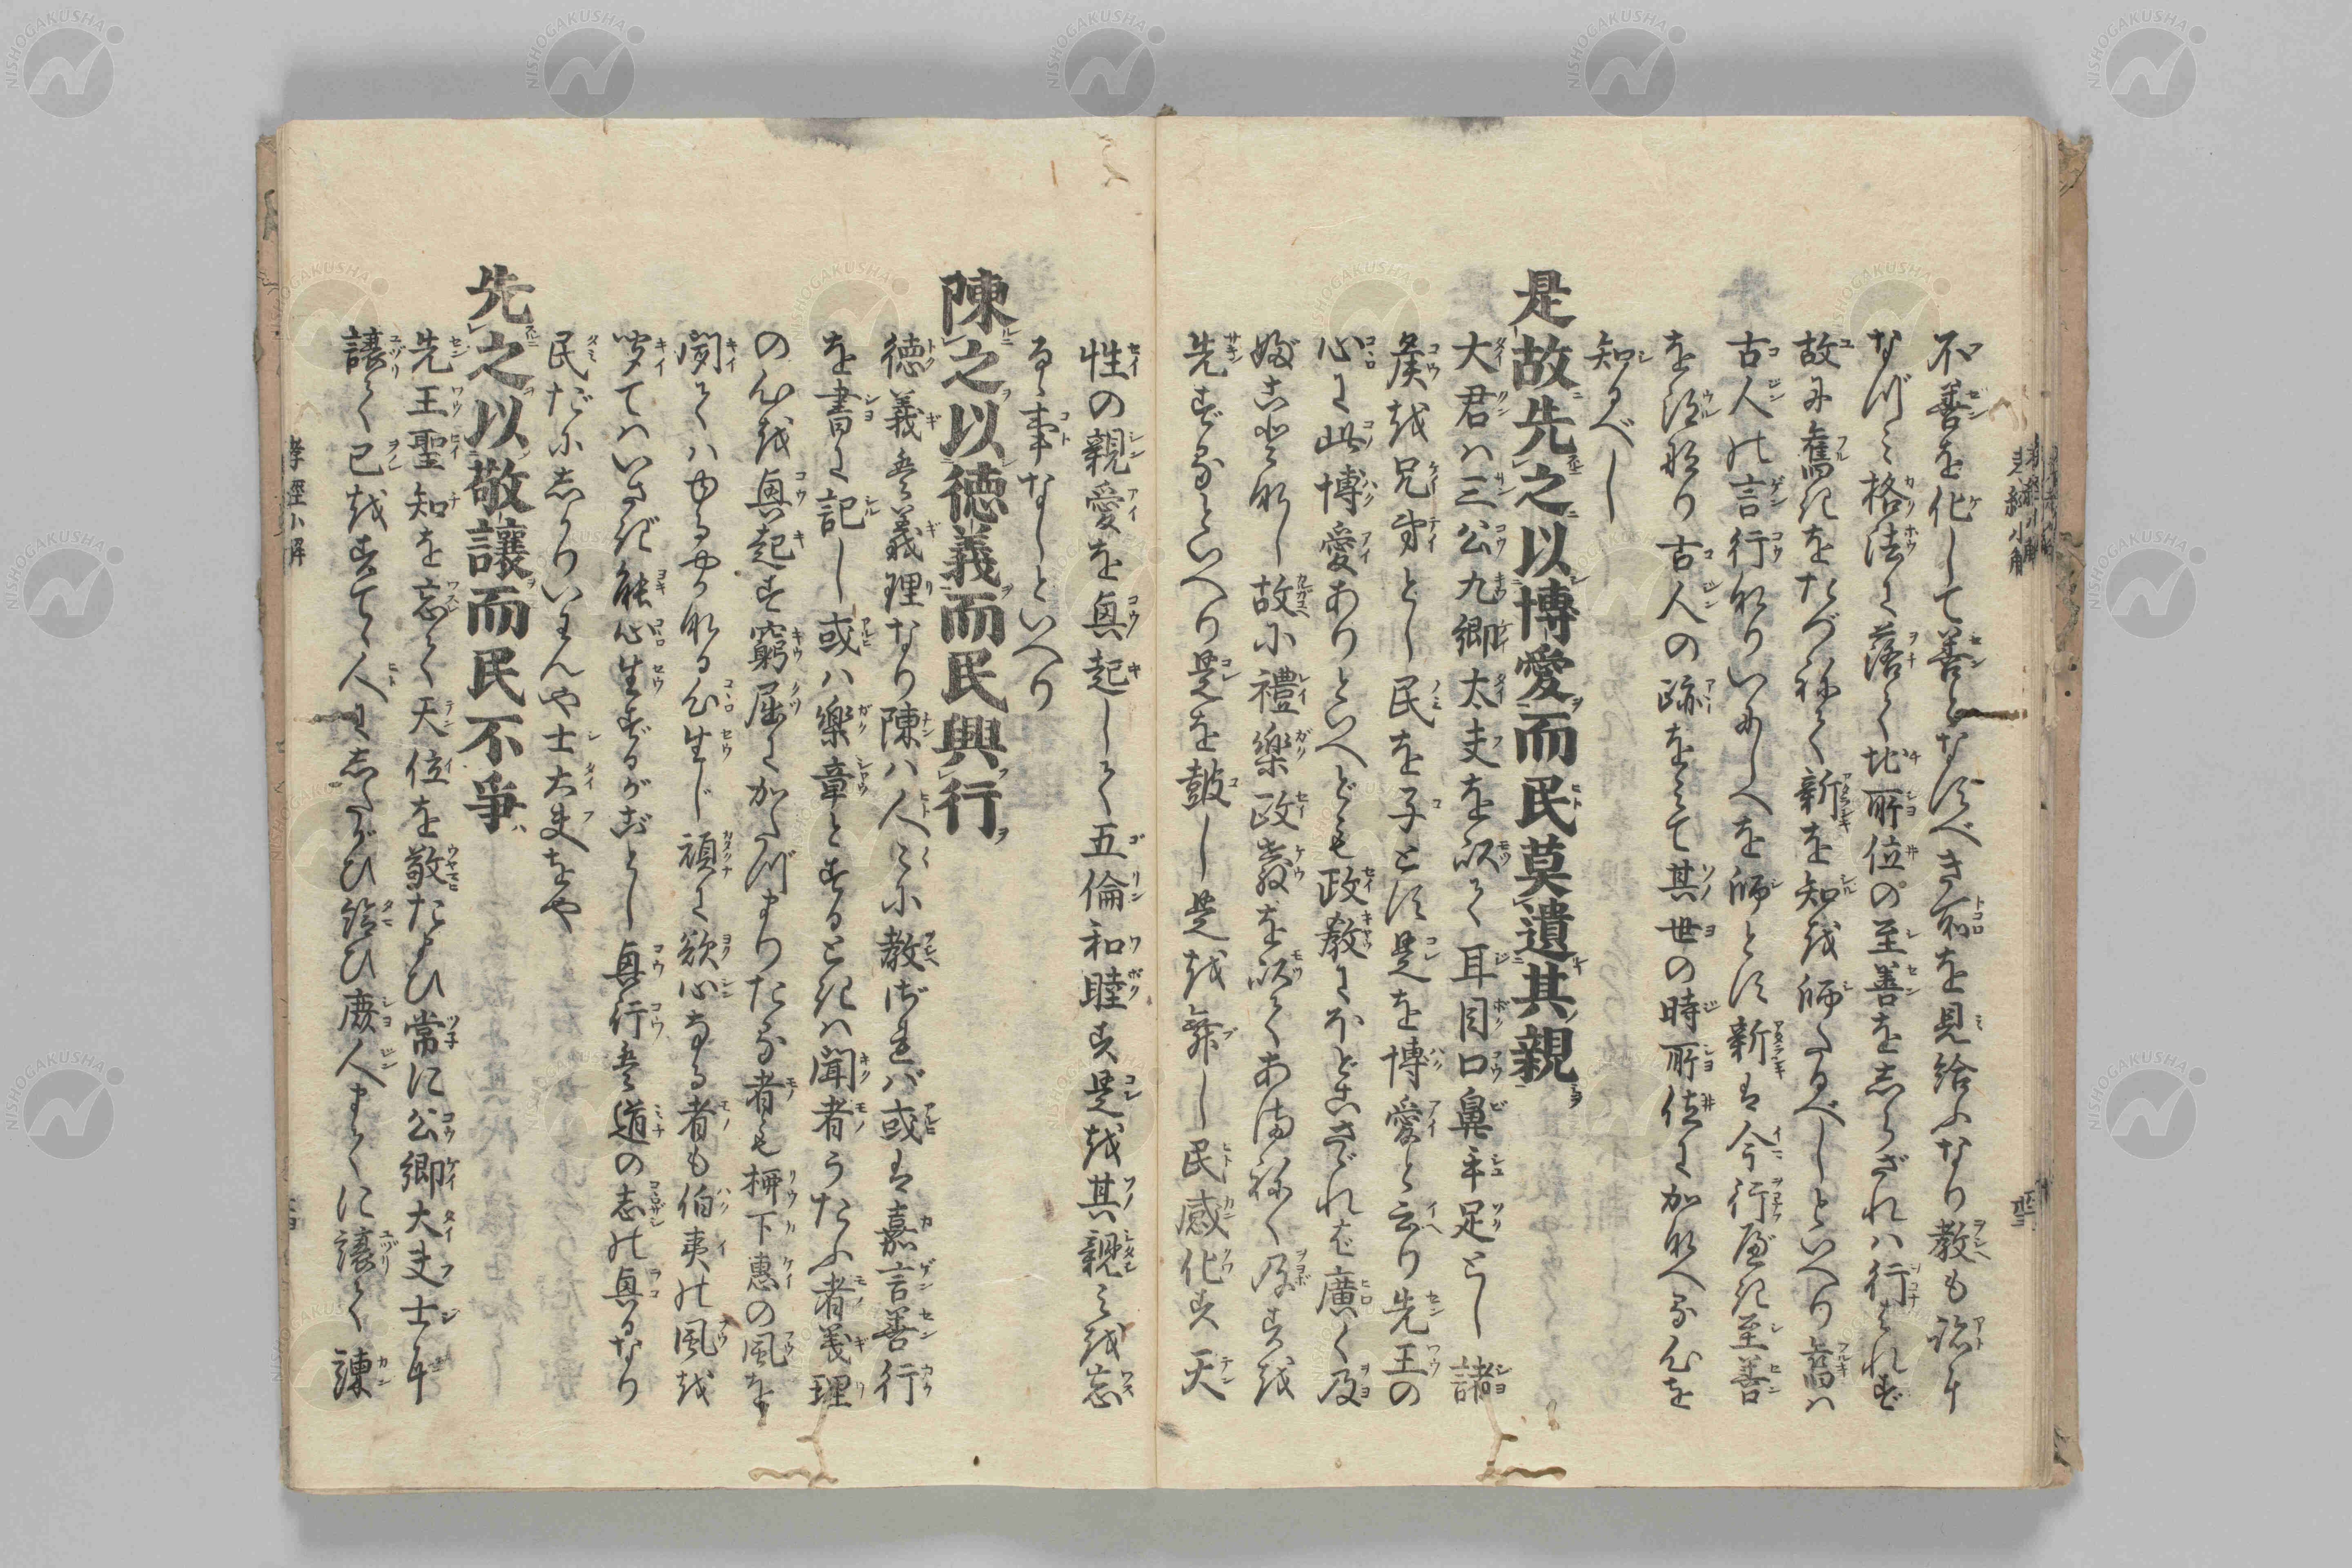 不善を化して善となすべき所を見給ふなり教も跡に
なづミ格法に落て地所位の至善をしらざれハ行はれず
故に舊きをたづねて新を知を師たるべしといへり舊ハ
古人の言行なりいにしへを師とす新は今行ふべき至善
を謂なり古人の跡をミて其世の時所位にかなへる心を
知るべし
是故先之以博愛而民莫遺其親
大君ハ三公九卿太夫を以て耳目口鼻手足とし諸
侯を兄弟とし民を子とす是を博愛と云り先王の
心に此博愛ありといへども政教にほどこさざれば廣く及
故に禮樂政教を以てあまねく及すを
先ずるといへり是を鼓し是を舞し民感化す天
性の親愛を興起して五倫和睦す是を其親ミを忘
るゝ事なしといへり
陳之以德義而民興行
徳義は義理なり陳ハ人〻に教れバ或は嘉言善行
を書に記し或ハ樂章とするときハ聞者うたふ者義理
の心を興起す窮屈にかたづまりたる者も柳下惠の風を
聞てハゆるやかなる心生じ頑に欲心なる者も伯夷の風を
聞てハいさぎ能心生ずるがごとし興行は道の志の興るなり
民だにしかりいわんや士大夫をや
先之以敬讓而民不爭
先王聖知を忘て天位を敬たまひ常に公卿大夫士に
讓て己をすてゝ人にしたがひ給ひ庶人まてに讓て諫
孝經小解